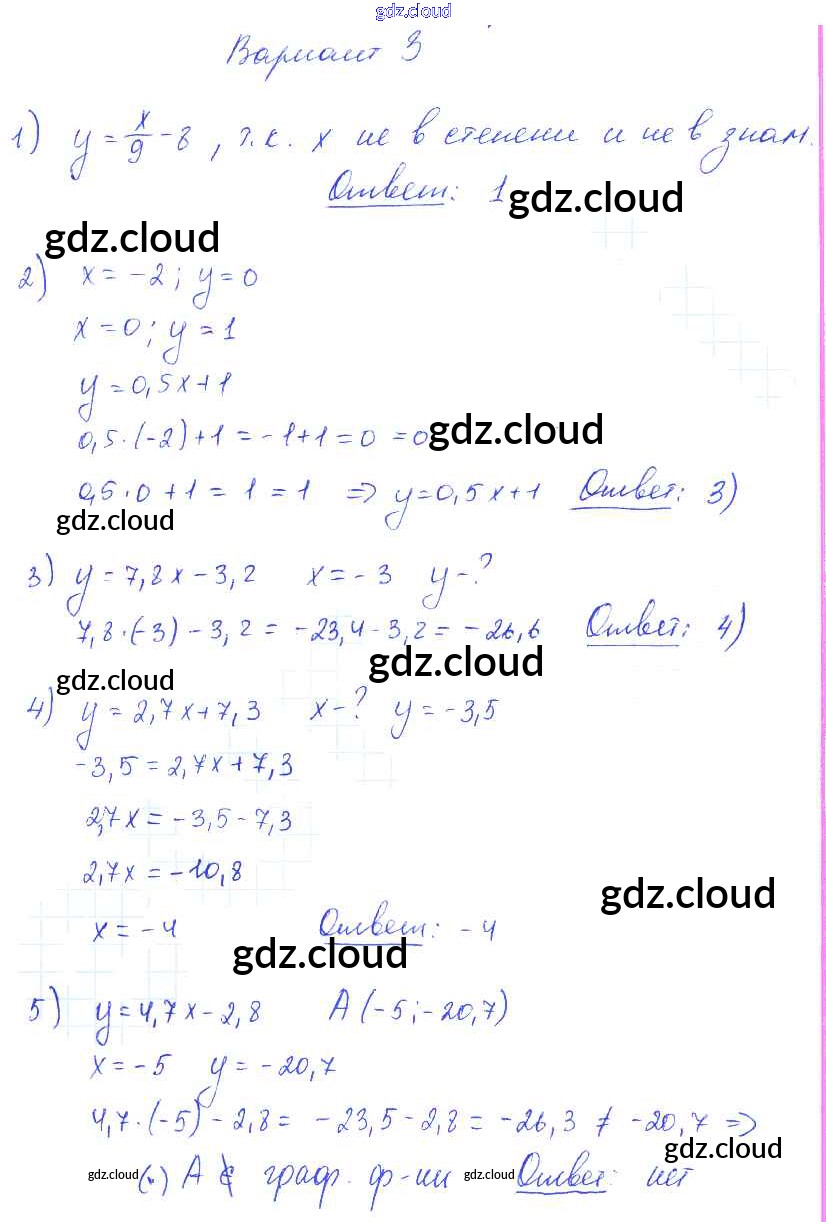 gdz.cloud
Вариант 3
1) y = x/9 - 8, т.к. x не в степени и не в знам.
Ответ: 1
gdz.cloud
gdz.cloud
2) x = -2; y = 0
x = 0; y = 1
y = 0,5x+1
0,5·(-2)+1 = -1+1 = 0 = 0
gdz.cloud
0,5·0+1 = 1 = 1 => y = 0,5x+1 Ответ: 3)
gdz.cloud
3) y = 7,8x - 3,2 x = -3 y - ?
7,8·(-3) - 3,2 = -23,4 - 3,2 = -26,6 Ответ: 4)
gdz.cloud
gdz.cloud
4) y = 2,7x+7,3 x - ? y = -3,5
-3,5 = 2,7x+7,3
2,7x = -3,5 - 7,3
2,7x = -10,8
gdz.cloud
x = -4 Ответ: -4
gdz.cloud
5) y = 4,7x - 2,8 A (-5; -20,7)
x = -5 y = -20,7
4,7·(-5) - 2,8 = -23,5 - 2,8 = -26,3 ≠ -20,7 =>
gdz.cloud
gdz.cloud (·) A ∉ граф. ф-ии gdz.cloud Ответ: нет